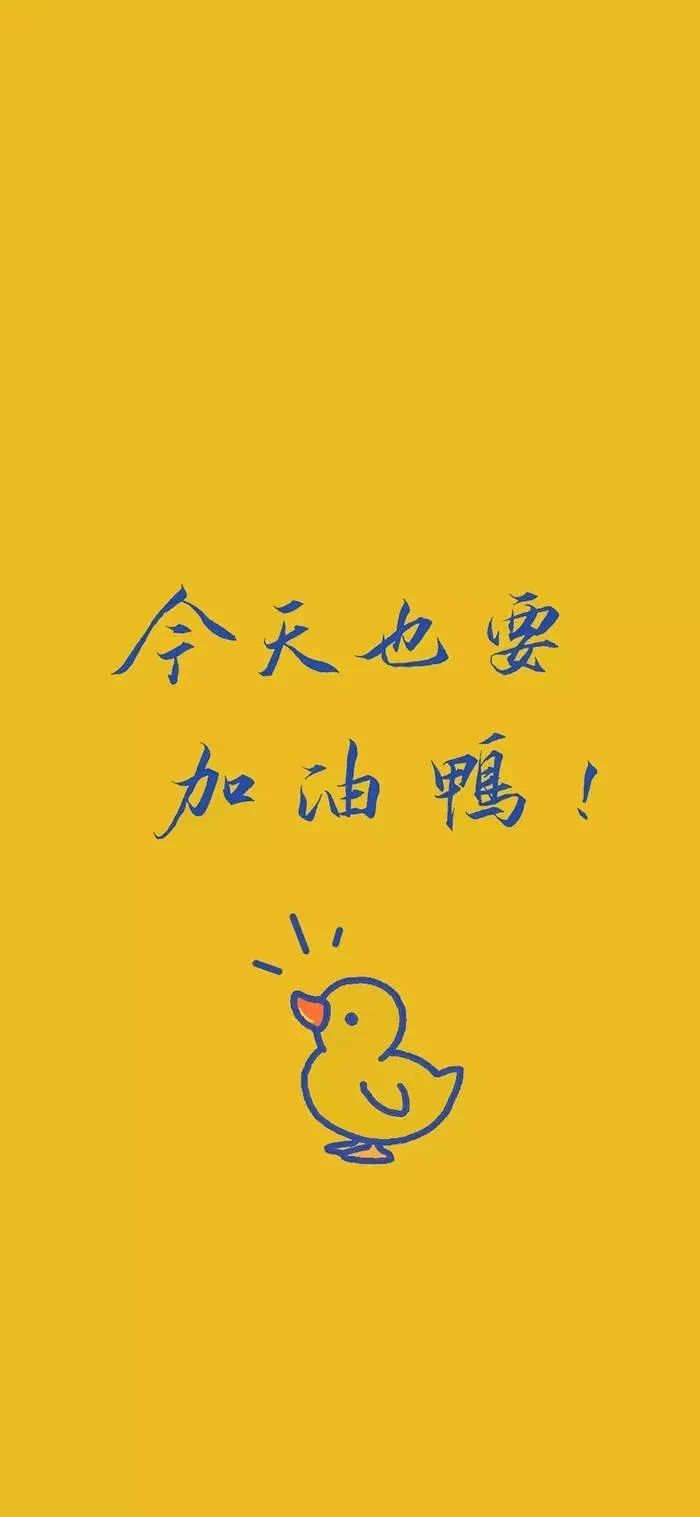 今天也要
加油鴨！